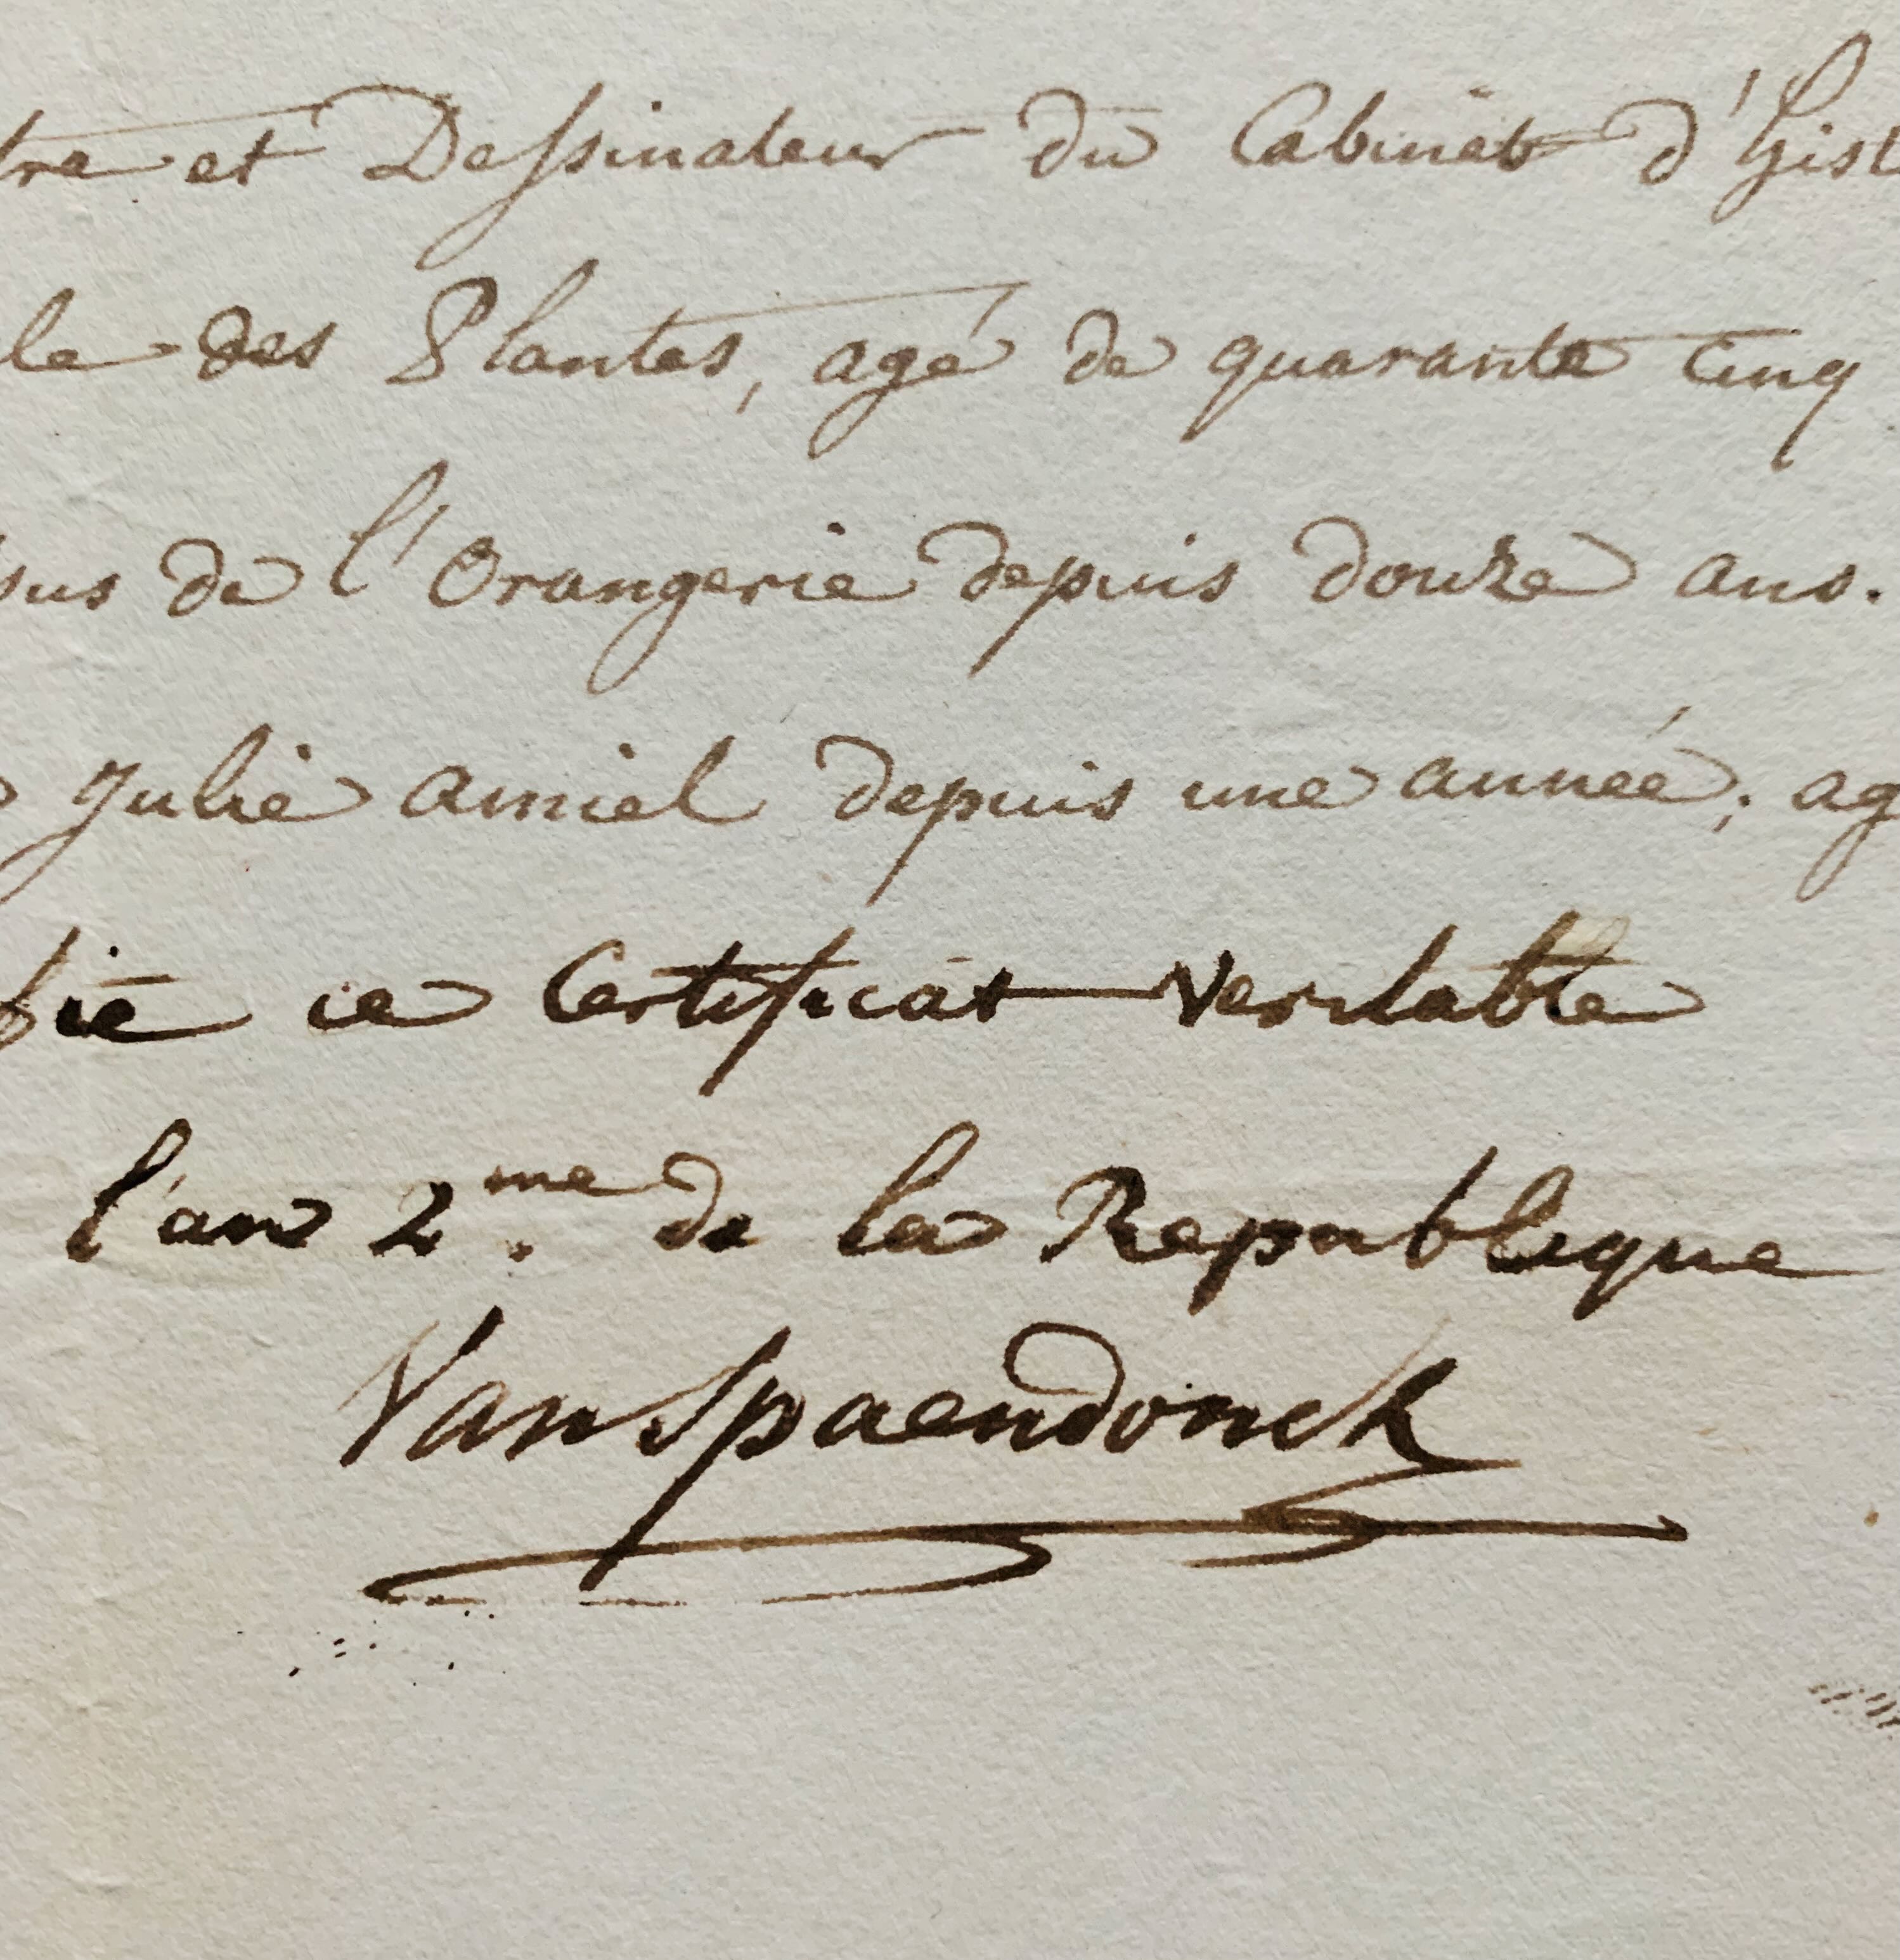 tre et Dessinateur du Cabinet d'hist
le des Plantes, agé de quarante cinq
sus de l'Orangerie depuis douze ans.
Julie amiel depuis une année; ag
fié ce Certificat veritable
l'an 2.me de la Republique
VanSpaendonck